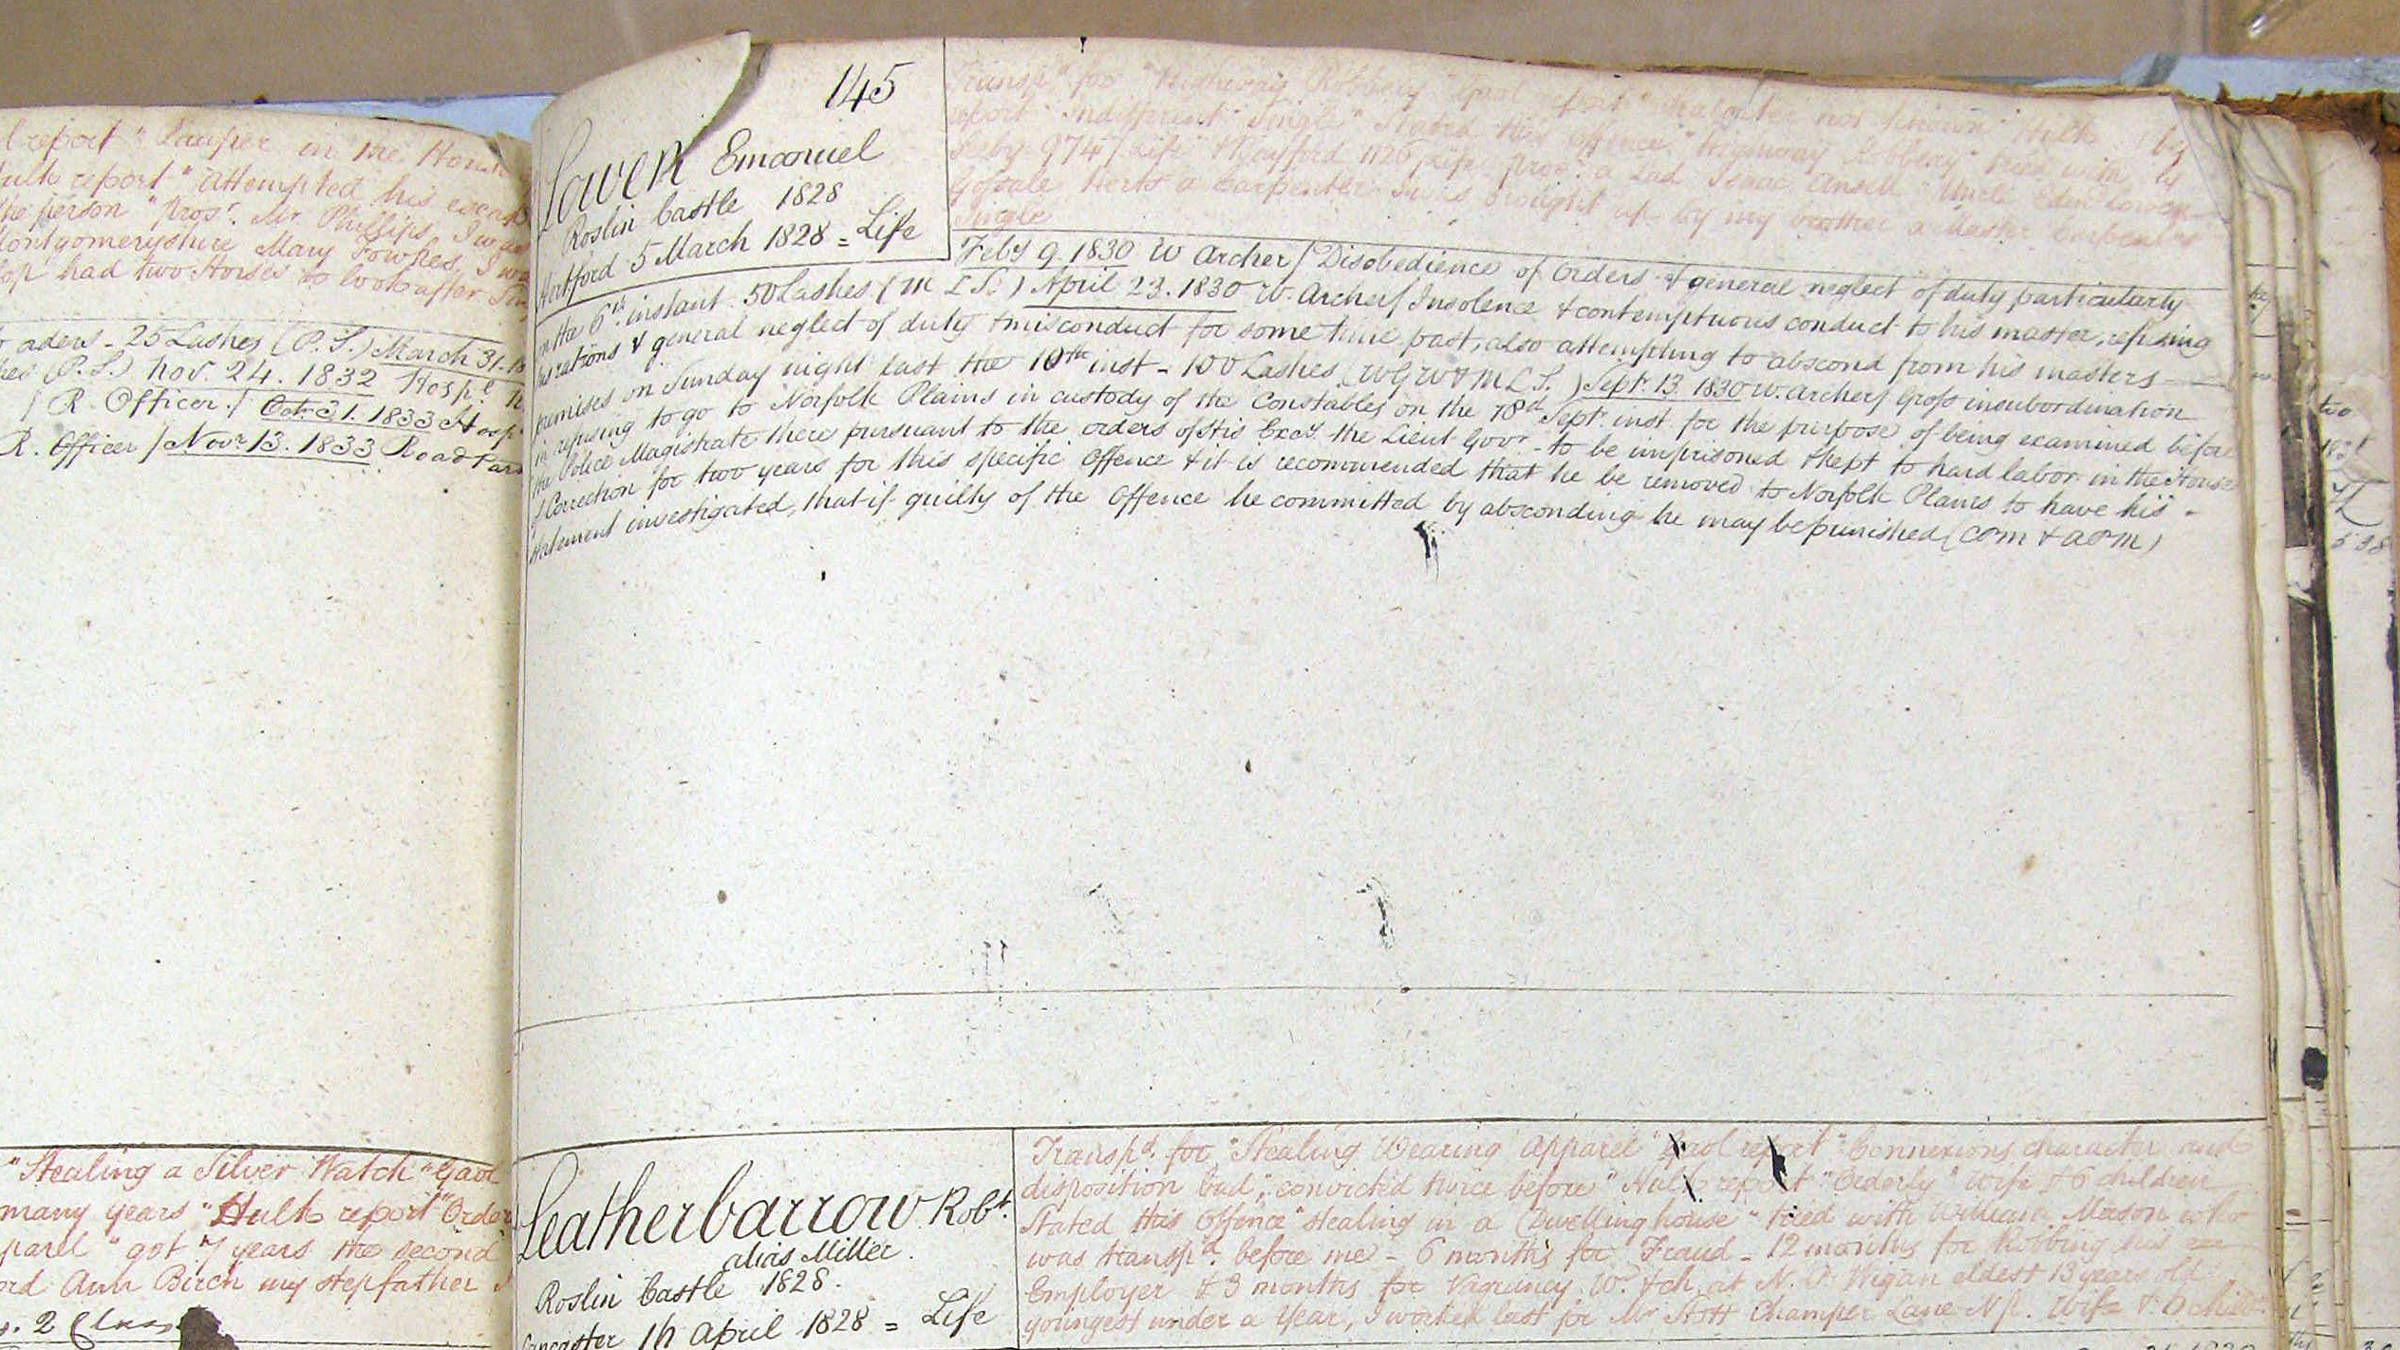 l report "Pauper in the
Hulk report "attempted his escape
the person " Prosr. Mr Phillips, I was
Montgomeryshire Mary Fowkes, I was
had two Horses to look after
aders - 25 Lashes (P.S.) March 31.
(P.S.) Nov. 24. 1832 Hospl.
/ R. Officer / Octr. 31. 1833
R. Officer / Novr 13. 1833 Road
"Stealing a Silver Watch "Gaol
many years "Hulk report "Order
parel " got 7 years the second
Ann Birch my stepfather I
2 Class
145
Lowen Emanuel
Roslin Castle 1828
Hertford 5 March 1828 = Life
Transpd. for "Highway Robbery" Gaol report not known" Hulk
report "Indifferent" Single" Stated this offence "Highway Robbery" tried with
974/ Life a Lad Isaac Ansell Uncle
Herts a Carpenter I was brought up by my brother a Master Carpenter
Single
Feby 9. 1830 W Archer/ Disobedience of orders & general neglect of duty particularly
on the 6th. instant. 50 Lashes (M L S.) April 23. 1830 W. Archer/ Insolence & contemptuous conduct to his master, refusing
his rations & general neglect of duty & misconduct for some time past, also attempting to abscond from his masters
premises on Sunday night last the 10th inst - 100 Lashes (WGW & MLS.) Sept. 13. 1830 W. Archer/ Gross insubordination
in refusing to go to Norfolk Plains in custody of the Constables on the Septr. inst for the purpose of being examined before
the Police Magistrate there pursuant to the orders of His Excy. the Lieut Govr - to be imprisoned & kept to hard labor in the House
of Correction for two years for this specific Offence & it is recommended that he be removed to Norfolk Plains to have his -
statement investigated, that if guilty of the Offence he committed by absconding he may be punished (
Leatherbarrow Robt.
alias Miller.
Roslin Castle 1828.
Lancaster 16 April 1828 = Life
Transpd. for "Stealing Wearing Apparel" Gaol report "Connexions, character and
disposition bad, convicted twice before" Hulk report "Orderly" Wife & 6 children
Stated this Offence "Stealing in a Dwelling house" tried with William Mason who
was transpd. before me - 6 months for Fraud - 12 months for Robbing his
Employer & 3 months for Vagrancy. W. & ch. at N.P. Wigan eldest 13 years old
youngest under a Year, I worked last for Mr Stott Champer Lane N.P. Wife & 6 childn.
two